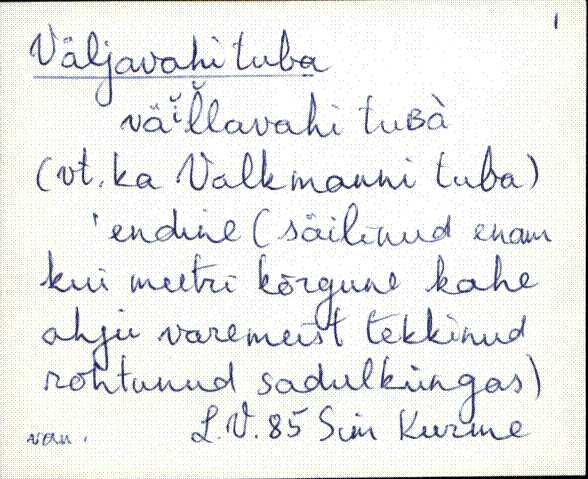 1
Väljavahi tuba
väi̮l̆lavahi tuʙà
(vt. ka Valkmanni tuba)
'endine (säilinud enam
kui meetri kõrgune kahe
ahju varemeist tekkinud
rohtunud sadulküngas)
L.V. 85 Sim Kurme